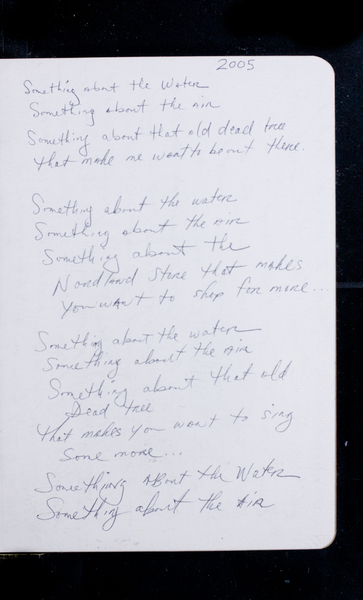 2005
Something about the Water
Something about the air
Something about that old dead tree
that make me want to be out there.
Something about the water
Something about the Air
Something about the
Nordland Store that makes
you want to shop for more...
Something about the water
Something about the Air
Something about that old
Dead tree
that makes you want to sing
Some more...
Something About the Water
Something about the Air